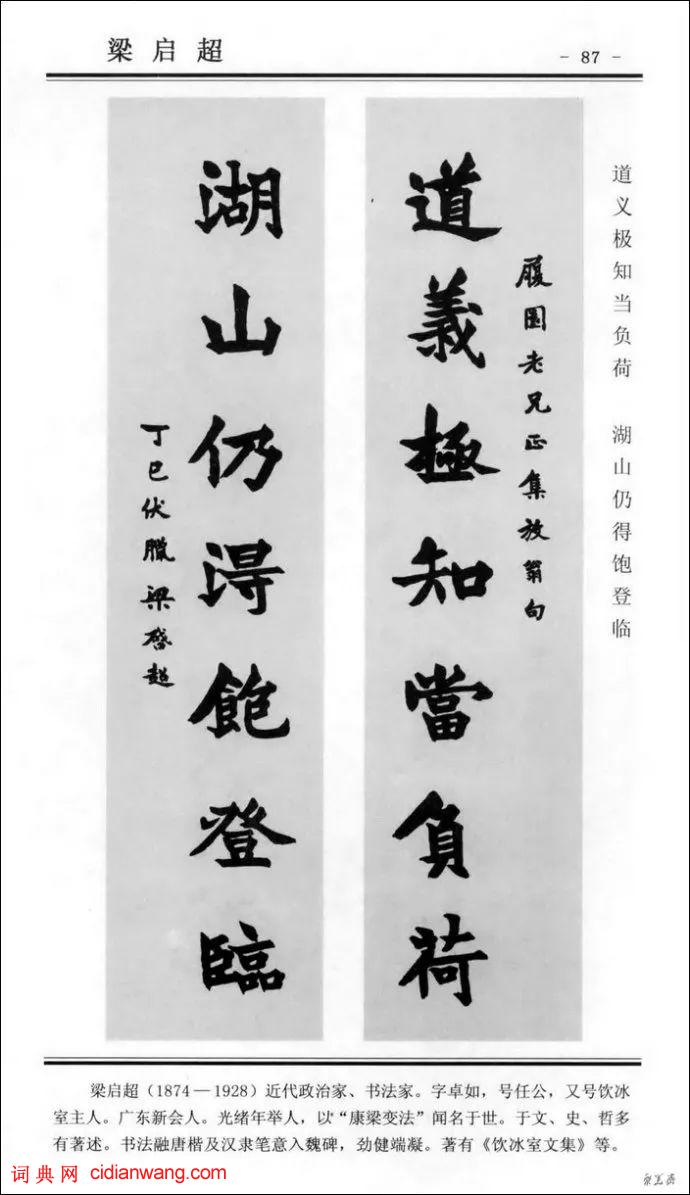 梁启超
- 87 -
道义极知当负荷　湖山仍得饱登临
履园老兄正集放翁句
道義極知當負荷
湖山仍淂飽登臨
丁巳伏臘梁啓超
梁启超（1874—1928）近代政治家、书法家。字卓如，号任公，又号饮冰
室主人。广东新会人。光绪年举人，以“康梁变法”闻名于世。于文、史、哲多
有著述。书法融唐楷及汉隶笔意入魏碑，劲健端凝。著有《饮冰室文集》等。
词典网 cidianwang.com